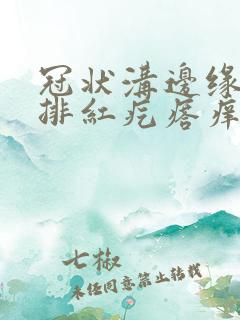 冠状溝邊缘
排紅疙瘩痒
七椒
未经同意禁止转载